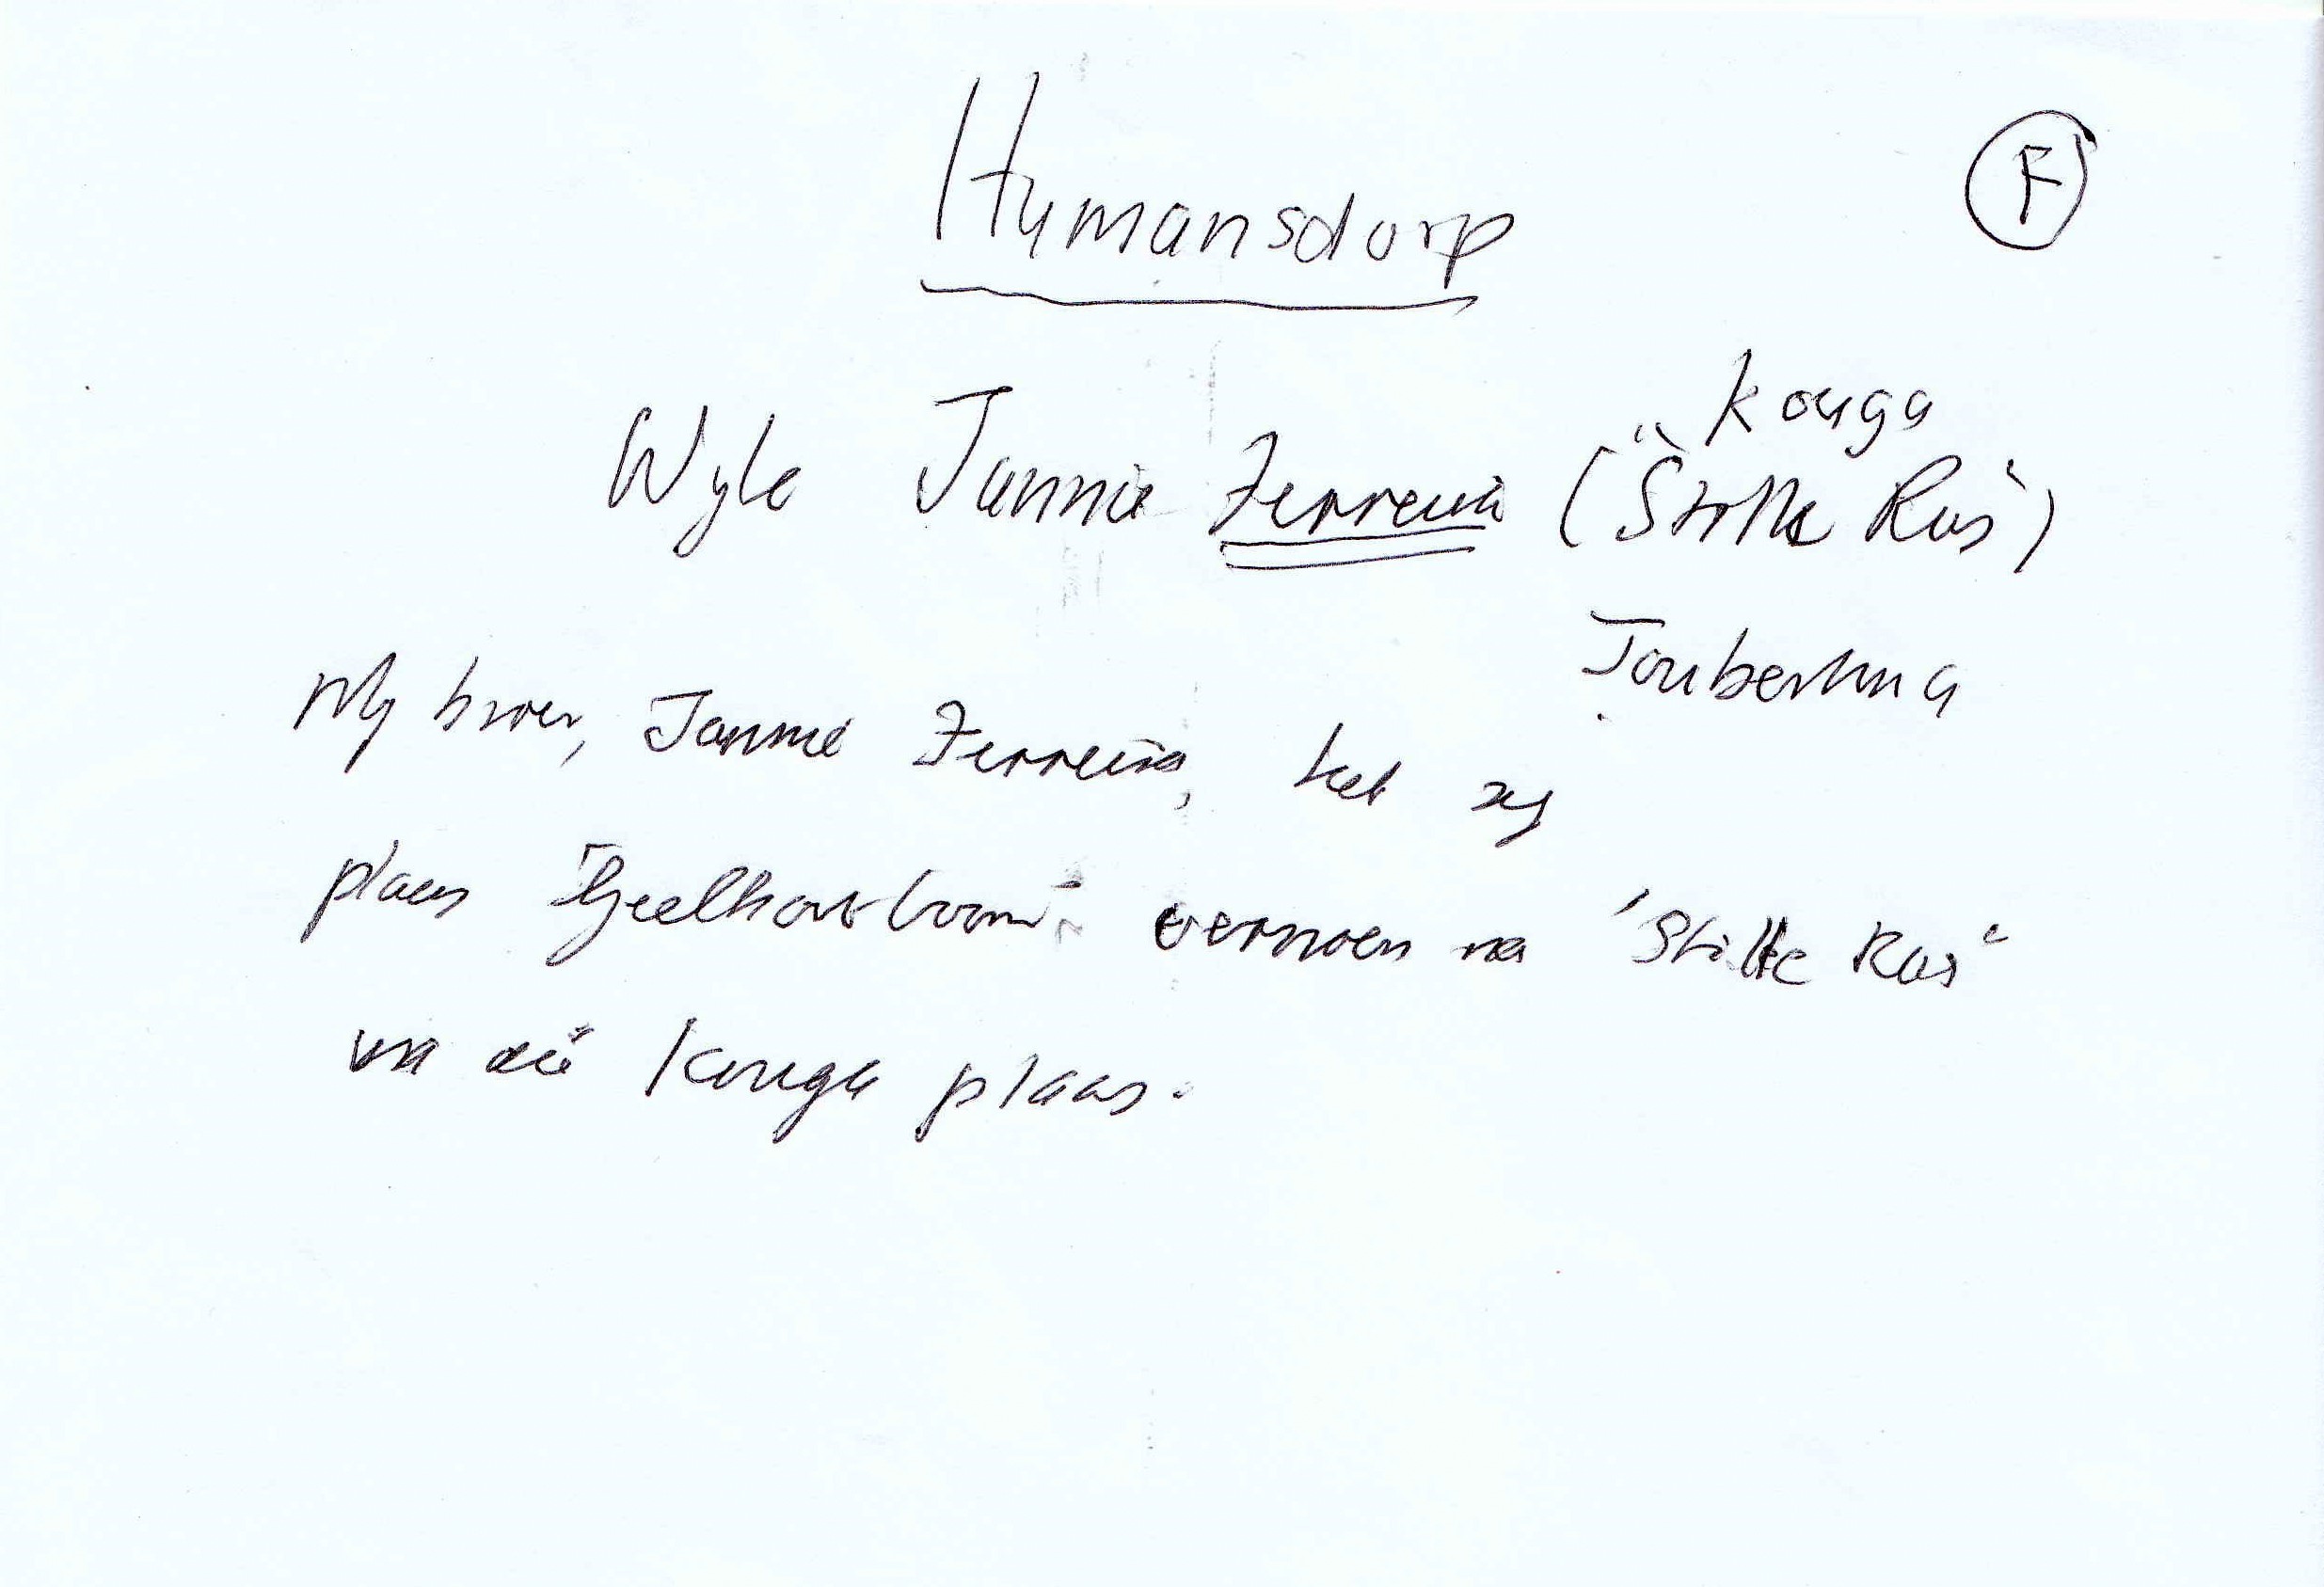 Humansdorp
F
Kouga
Wyle Jannie Ferreira ("Stille Rus")
Joubertina
My broer, Jannie Ferreira, het sy
plaas "Geelhoutboom" vernoem na "Stille Rus"
na die Kouga plaas.